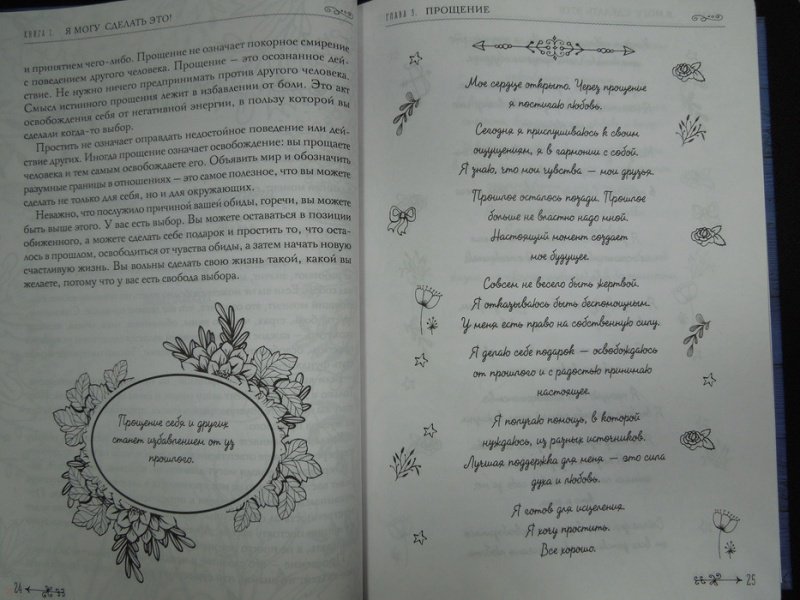 КНИГА 1. Я МОГУ СДЕЛАТЬ ЭТО!
и принятием чего-либо. Прощение не означает покорное смирение
с поведением другого человека. Прощение — это осознанное дей-
ствие. Не нужно ничего предпринимать против другого человека.
Смысл истинного прощения лежит в избавлении от боли. Это акт
освобождения себя от негативной энергии, в пользу которой вы
сделали когда-то выбор.
Простить не означает оправдать недостойное поведение или дей-
ствие других. Иногда прощение означает освобождение: вы прощаете
человека и тем самым освобождаете его. Объявить мир и обозначить
разумные границы в отношениях — это самое полезное, что вы можете
сделать не только для себя, но и для окружающих.
Неважно, что послужило причиной вашей обиды, горечи, вы можете
быть выше этого. У вас есть выбор. Вы можете оставаться в позиции
обиженного, а можете сделать себе подарок и простить то, что оста-
лось в прошлом, освободиться от чувства обиды, а затем начать новую
счастливую жизнь. Вы вольны сделать свою жизнь такой, какой вы
желаете, потому что у вас есть свобода выбора.
Прощение себя и других
станет избавлением от уз
прошлого.
24
ГЛАВА 3. ПРОЩЕНИЕ
Мое сердце открыто. Через прощение
я постигаю любовь.
Сегодня я прислушиваюсь к своим
ощущениям, я в гармонии с собой.
Я знаю, что мои чувства — мои друзья.
Прошлое осталось позади. Прошлое
больше не властно надо мной.
Настоящий момент создает
мое будущее.
Совсем не весело быть жертвой.
Я отказываюсь быть беспомощным.
У меня есть право на собственную силу.
Я делаю себе подарок — освобождаюсь
от прошлого и с радостью принимаю
настоящее.
Я получаю помощь, в которой
нуждаюсь, из разных источников.
Лучшая поддержка для меня — это сила
духа и любовь.
Я готов для исцеления.
Я хочу простить.
Все хорошо.
25